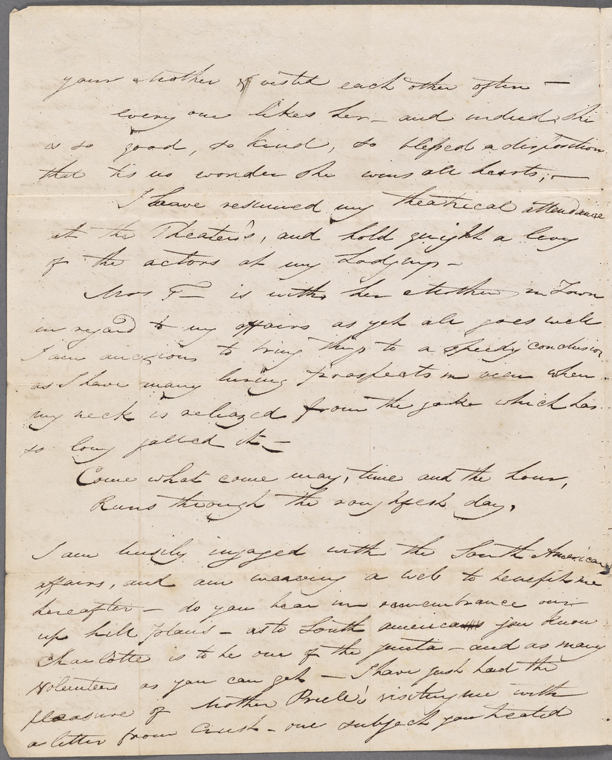 your Mother & visited each other often —
every one likes her — and indeed she
is so good, so kind, so blessed a disposition
that tis no wonder she wins all hearts; —
I have resumed my theatrical attendance
at the Theater's, and hold quight a levy
of the actors at my Lodgings —
Mrs F— is with her Mother in Town
in regard to my affairs as yet all goes well
I am anxious to bring things to a speedy conclusion
as I have many living prospects in view when
my neck is releazed from the yoke which has
so long galled it —
Come what come may, time and the hour,
Runs through the roughfesh day,
I am busily ingaged with the South American
affairs, and am weaving a web to benefit me
hereafter — do you bear in remembrance our
up hill plans — as to South america you know
Charlotte is to be one of the junta — and as many
Volunteers as you can get — I have just had the
pleasure of Mother Price's visiting me with
a letter from Crush — one subject you treated